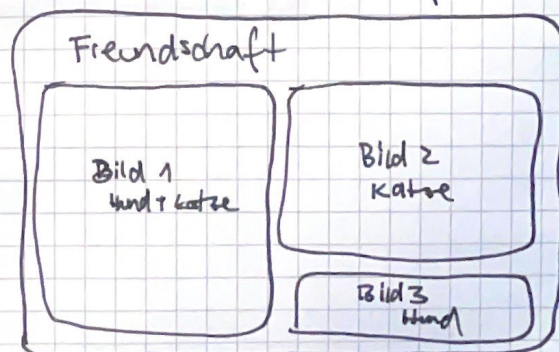 Freundschaft
Bild 1
Hund + Katze
Bild 2
Katze
Bild 3
Hund